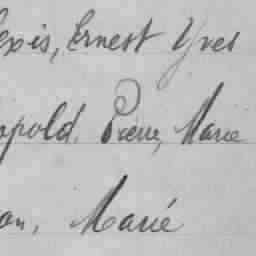 exis, Ernest Yves
opold, Pierre, Marie
on, Marié